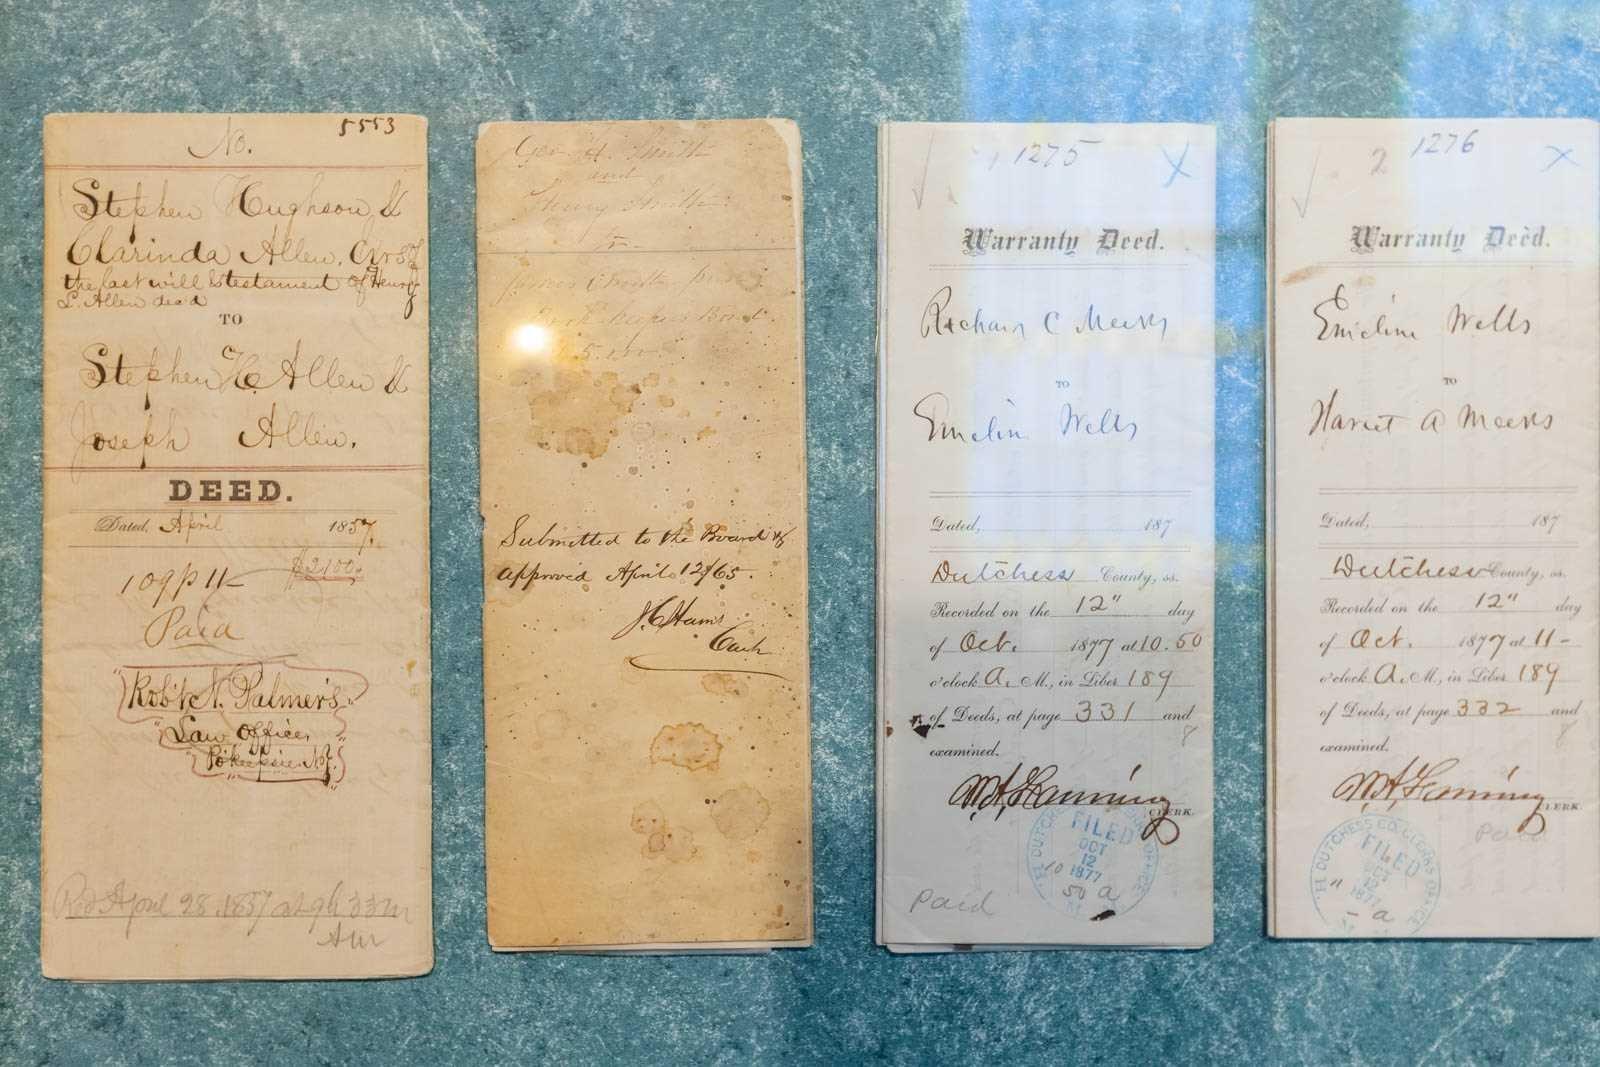 5553
No.
Stephen Hughson, &
Clarinda Allen, Exrs of
the last will & testament of Henry
L. Allen dead
TO
Stephen H. Allen &
Joseph Allen.
DEED.
Dated, April 1857.
109 p 11
$2100.
Paid
"Robt N. Palmer's"
"Law Office"
"Po'keepsie N.Y."
Rcd April 28, 1857 at 9h 33m
Am
Geo. A. Smith
and
Henry Smith
to
James Smith
Book keepers Bond.
Submitted to the Board &
approved April 12/65.
Cash
1275
X
Warranty Deed.
Richard C Meeks
TO
Emeline Wells
Dated, 187
Dutchess County, ss.
Recorded on the 12" day
of Oct. 1877 at 10.50
o'clock A. M., in Liber 189
of Deeds, at page 331 and
examined.
CLERK.
DUTCHESS CO. CLERKS OFFICE
FILED
OCT
12
1877
10 H
50 a M
Paid
2 1276
X
Warranty Deed.
Emeline Wells
TO
Harriet A Meeks
Dated, 187
Dutchess County, ss.
Recorded on the 12" day
of Oct. 1877 at 11-
o'clock A. M., in Liber 189
of Deeds, at page 332 and
examined.
CLERK.
Paid
DUTCHESS CO. CLERKS OFFICE
FILED
OCT
12
1877
11 H
- a M